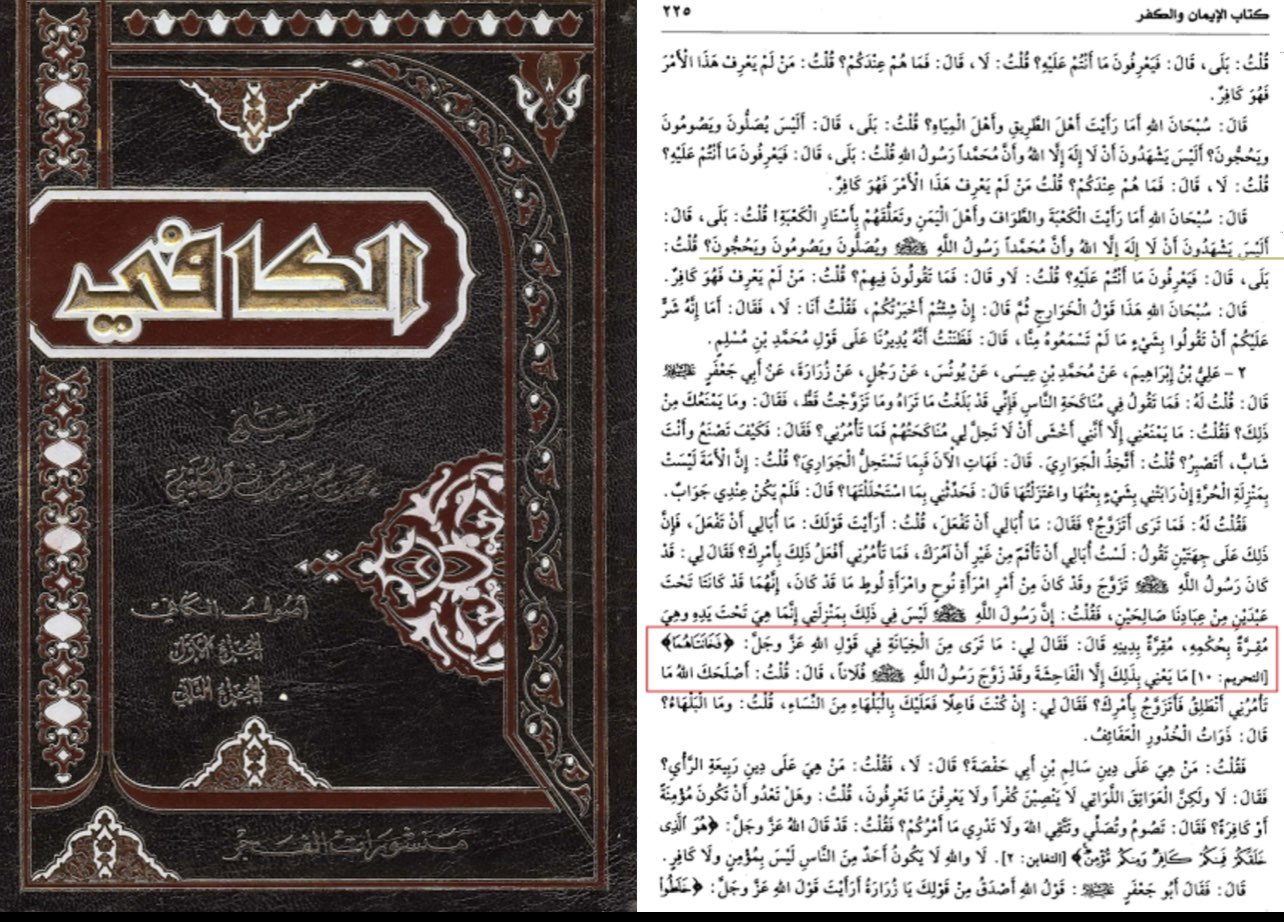 الكافي
للشيخ
محمد بن يعقوب الكليني
أصول الكافي
الجزء الأول
الجزء الثاني
منشورات الفجر
كتاب الإيمان والكفر
٢٢٥
قُلْتُ: بَلَى، قَالَ: فَيَعْرِفُونَ مَا أَنْتُمْ عَلَيْهِ؟ قُلْتُ: لَا، قَالَ: فَمَا هُمْ عِنْدَكُمْ؟ قُلْتُ: مَنْ لَمْ يَعْرِفْ هَذَا الْأَمْرَ
فَهُوَ كَافِرٌ.
قَالَ: سُبْحَانَ اللهِ أَمَا رَأَيْتَ أَهْلَ الطَّرِيقِ وَأَهْلَ الْمِيَاهِ؟ قُلْتُ: بَلَى، قَالَ: أَلَيْسَ يُصَلُّونَ وَيَصُومُونَ
وَيَحُجُّونَ؟ أَلَيْسَ يَشْهَدُونَ أَنْ لَا إِلَهَ إِلَّا اللهُ وَأَنَّ مُحَمَّداً رَسُولُ اللهِ قُلْتُ: بَلَى، قَالَ: فَيَعْرِفُونَ مَا أَنْتُمْ عَلَيْهِ؟
قُلْتُ: لَا، قَالَ: فَمَا هُمْ عِنْدَكُمْ؟ قُلْتُ مَنْ لَمْ يَعْرِفْ هَذَا الْأَمْرَ فَهُوَ كَافِرٌ.
قَالَ: سُبْحَانَ اللهِ أَمَا رَأَيْتَ الْكَعْبَةَ وَالطَّوَافَ وَأَهْلَ الْيَمَنِ وَتَعَلُّقَهُمْ بِأَسْتَارِ الْكَعْبَةِ! قُلْتُ: بَلَى، قَالَ:
أَلَيْسَ يَشْهَدُونَ أَنْ لَا إِلَهَ إِلَّا اللهُ وَأَنَّ مُحَمَّداً رَسُولُ اللَّهِ ﷺ وَيُصَلُّونَ وَيَصُومُونَ وَيَحُجُّونَ؟ قُلْتُ:
بَلَى، قَالَ: فَيَعْرِفُونَ مَا أَنْتُمْ عَلَيْهِ؟ قُلْتُ: لَاو قَالَ: فَمَا تَقُولُونَ فِيهِمْ؟ قُلْتُ: مَنْ لَمْ يَعْرِفْ فَهُوَ كَافِرٌ.
قَالَ: سُبْحَانَ اللهِ هَذَا قَوْلُ الْخَوَارِجِ ثُمَّ قَالَ: إِنْ شِئْتُمْ أَخْبَرْتُكُمْ، فَقُلْتُ أَنَا: لَا، فَقَالَ: أَمَا إِنَّهُ شَرٌّ
عَلَيْكُمْ أَنْ تَقُولُوا بِشَيْءٍ مَا لَمْ تَسْمَعُوهُ مِنَّا، قَالَ: فَظَنَنْتُ أَنَّهُ يُدِيرُنَا عَلَى قَوْلِ مُحَمَّدِ بْنِ مُسْلِمٍ.
٢ - عَلِيُّ بْنُ إِبْرَاهِيمَ، عَنْ مُحَمَّدِ بْنِ عِيسَى، عَنْ يُونُسَ، عَنْ رَجُلٍ، عَنْ زُرَارَةَ، عَنْ أَبِي جَعْفَرٍ عليه السلام
قَالَ: قُلْتُ لَهُ: فَمَا تَقُولُ فِي مُنَاكَحَةِ النَّاسِ فَإِنِّي قَدْ بَلَغْتُ مَا تَرَاهُ وَمَا تَزَوَّجْتُ قَطُّ، فَقَالَ: وَمَا يَمْنَعُكَ مِنْ
ذَلِكَ؟ فَقُلْتُ: مَا يَمْنَعُنِي إِلَّا أَنَّنِي أَخْشَى أَنْ لَا تَحِلَّ لِي مُنَاكَحَتُهُمْ فَمَا تَأْمُرُنِي؟ فَقَالَ: فَكَيْفَ تَصْنَعُ وَأَنْتَ
شَابٌّ، أَتَصْبِرُ؟ قُلْتُ: أَتَّخِذُ الْجَوَارِيَ. قَالَ: فَهَاتِ الْآنَ فَبِمَا تَسْتَحِلُّ الْجَوَارِيَ؟ قُلْتُ: إِنَّ الْأَمَةَ لَيْسَتْ
بِمَنْزِلَةِ الْحُرَّةِ إِنْ رَابَتْنِي بِشَيْءٍ بِعْتُهَا وَاعْتَزَلْتُهَا قَالَ: فَحَدِّثْنِي بِمَا اسْتَحْلَلْتَهَا؟ قَالَ: فَلَمْ يَكُنْ عِنْدِي جَوَابٌ.
فَقُلْتُ لَهُ: فَمَا تَرَى أَتَزَوَّجُ؟ فَقَالَ: مَا أُبَالِي أَنْ تَفْعَلَ، قُلْتُ: أَرَأَيْتَ قَوْلَكَ: مَا أُبَالِي أَنْ تَفْعَلَ، فَإِنَّ
ذَلِكَ عَلَى جِهَتَيْنِ تَقُولُ: لَسْتُ أُبَالِي أَنْ تَأْثَمَ مِنْ غَيْرِ أَنْ آمُرَكَ، فَمَا تَأْمُرُنِي أَفْعَلُ ذَلِكَ بِأَمْرِكَ؟ فَقَالَ لِي: قَدْ
كَانَ رَسُولُ اللَّهِ ﷺ تَزَوَّجَ وَقَدْ كَانَ مِنْ أَمْرِ امْرَأَةِ نُوحٍ وَامْرَأَةِ لُوطٍ مَا قَدْ كَانَ، إِنَّهُمَا قَدْ كَانَتَا تَحْتَ
عَبْدَيْنِ مِنْ عِبَادِنَا صَالِحَيْنِ، فَقُلْتُ: إِنَّ رَسُولَ اللَّهِ ﷺ لَيْسَ فِي ذَلِكَ بِمَنْزِلَتِي إِنَّمَا هِيَ تَحْتَ يَدِهِ وَهِيَ
مُقِرَّةٌ بِحُكْمِهِ، مُقِرَّةٌ بِدِينِهِ قَالَ: فَقَالَ لِي: مَا تَرَى مِنَ الْخِيَانَةِ فِي قَوْلِ اللهِ عَزَّ وَجَلَّ: ﴿فَخَانَتَاهُمَا﴾
[التحريم: ١٠] مَا يَعْنِي بِذَلِكَ إِلَّا الْفَاحِشَةَ وَقَدْ زَوَّجَ رَسُولُ اللَّهِ ﷺ فُلَاناً، قَالَ: قُلْتُ: أَصْلَحَكَ اللهُ مَا
تَأْمُرُنِي أَنْطَلِقُ فَأَتَزَوَّجُ بِأَمْرِكَ؟ فَقَالَ لِي: إِنْ كُنْتَ فَاعِلًا فَعَلَيْكَ بِالْبَلْهَاءِ مِنَ النِّسَاءِ، قُلْتُ: وَمَا الْبَلْهَاءُ؟
قَالَ: ذَوَاتُ الْخُدُورِ الْعَفَائِفُ.
فَقُلْتُ: مَنْ هِيَ عَلَى دِينِ سَالِمِ بْنِ أَبِي حَفْصَةَ؟ قَالَ: لَا، فَقُلْتُ: مَنْ هِيَ عَلَى دِينِ رَبِيعَةِ الرَّأْيِ؟
فَقَالَ: لَا وَلَكِنَّ الْعَوَاتِقَ اللَّوَاتِي لَا يَنْصِبْنَ كُفْراً وَلَا يَعْرِفْنَ مَا تَعْرِفُونَ، قُلْتُ: وَهَلْ تَعْدُو أَنْ تَكُونَ مُؤْمِنَةً
أَوْ كَافِرَةً؟ فَقَالَ: تَصُومُ وَتُصَلِّي وَتَتَّقِي اللهَ وَلَا تَدْرِي مَا أَمْرُكُمْ؟ فَقُلْتُ: قَدْ قَالَ اللهُ عَزَّ وَجَلَّ: ﴿هُوَ الَّذِي
خَلَقَكُمْ فَمِنكُمْ كَافِرٌ وَمِنكُم مُّؤْمِنٌ﴾ [التغابن: ٢]. لَا وَاللهِ لَا يَكُونُ أَحَدٌ مِنَ النَّاسِ لَيْسَ بِمُؤْمِنٍ وَلَا كَافِرٍ.
قَالَ: فَقَالَ أَبُو جَعْفَرٍ عليه السلام: قَوْلُ اللهِ أَصْدَقُ مِنْ قَوْلِكَ يَا زُرَارَةُ أَرَأَيْتَ قَوْلَ اللهِ عَزَّ وَجَلَّ: ﴿خَلَطُوا